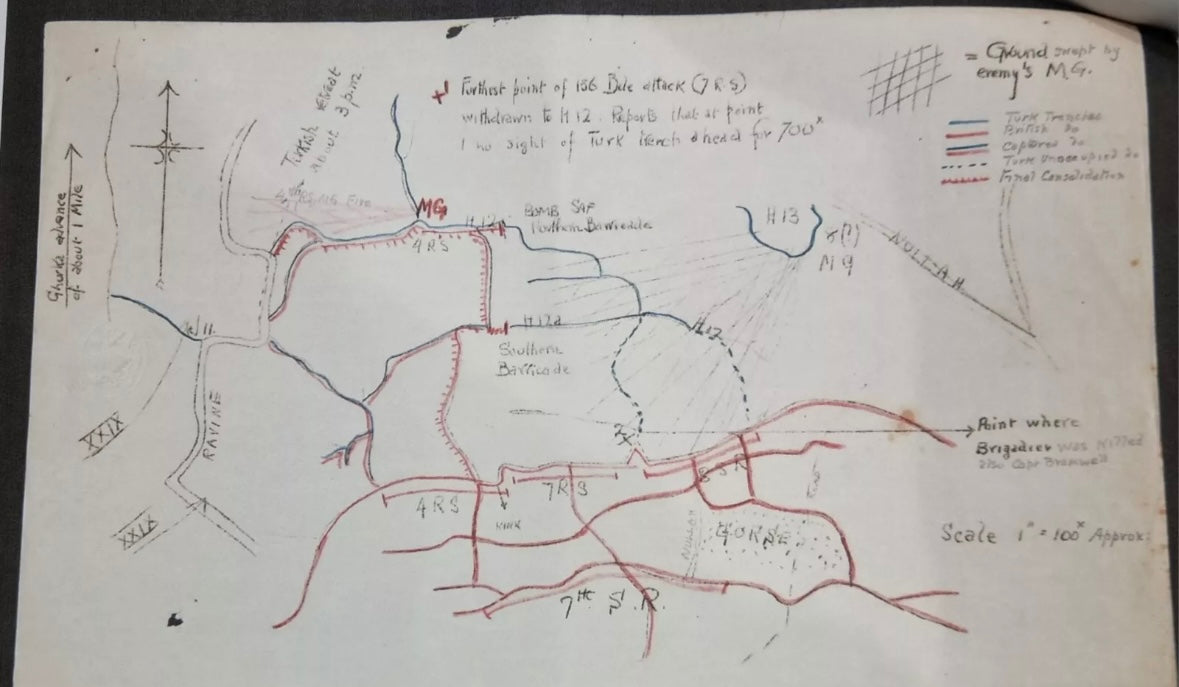 Furthest point of 156 Bde attack (7 R.S)
withdrawn to H12. Reports that at point
1 no sight of Turk trench ahead for 700ˣ
= Ground swept by
enemy's M.G.
Turk Trenches
British Do
Captured Do
Turk Unoccupied Do
Final Consolidation
Turkish retreat
about 3 p.m.
Ghurka advance
of about 1 Mile
4th RS MG Fire
MG
H12
BOMB SAP
Northern Barricade
4 RS
H13
(?)
MG
NULLAH
J11
H12a
Southern
Barricade
H12
XXIX
RAVINE
XXIX
Point where
Brigadier was killed
also Capt Bramwell
4 RS
7 RS
8 S R
KIRK
NULLAH
GORSE
Scale 1" = 100ˣ Approx:
7th S.R.